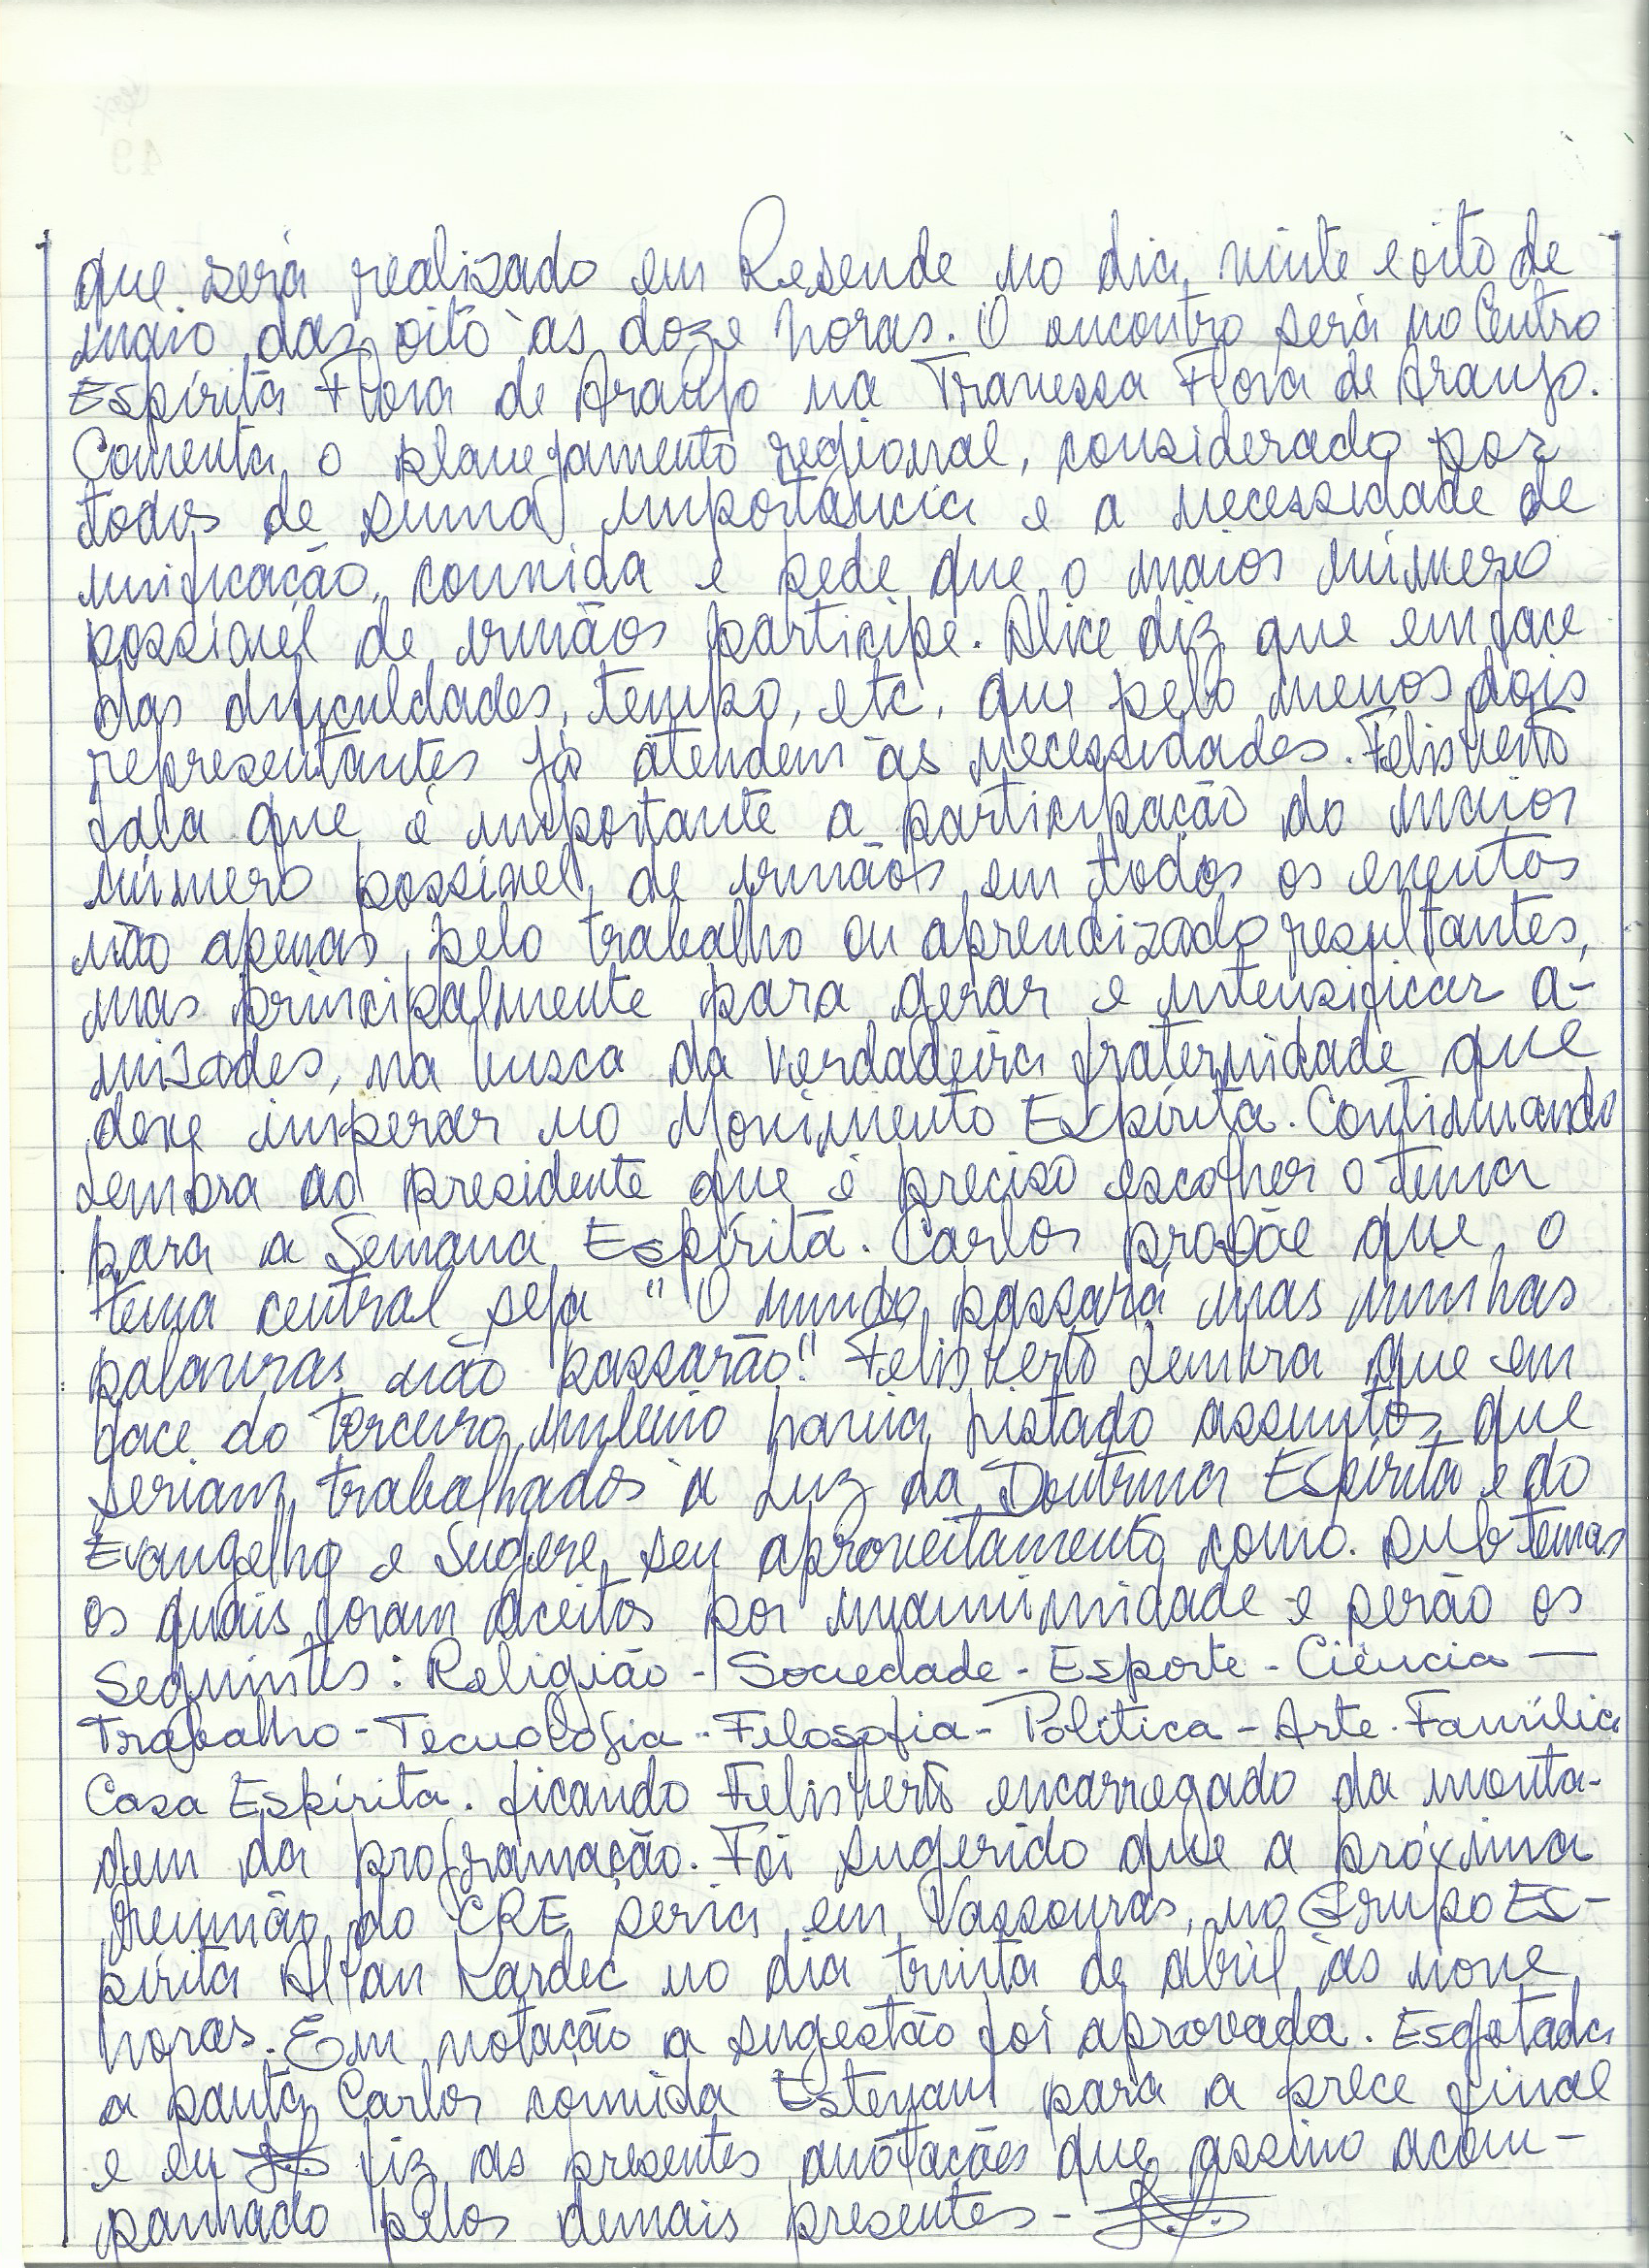 que será realizado em Resende no dia vinte e oito de
maio das oito às doze horas. O encontro será no Centro
Espírita Flora de Araujo na Travessa Flora de Araujo.
Comenta o planejamento regional, considerado por
todos de suma importância e a necessidade de
unificação, convida e pede que o maior número
possível de irmãos participe. Alice diz que em face
das dificuldades, tempo, etc, que pelo menos dois
representantes já atendem às necessidades. Felisberto
fala que é importante a participação do maior
número possível de irmãos em todos os eventos
não apenas pelo trabalho ou aprendizado resultantes,
mas principalmente para gerar e intensificar a-
mizades, na busca da verdadeira fraternidade que
deve imperar no Movimento Espírita. Continuando
Lembra ao presidente que é preciso escolher o tema
para a Semana Espírita. Carlos propõe que o
tema central seja "O mundo passará mas minhas
palavras não passarão." Felisberto Lembra que em
face do terceiro milênio havia listado assuntos que
seriam trabalhados à Luz da Doutrina Espírita e do
Evangelho e Sugere seu aproveitamento como sub temas
os quais foram aceitos por unanimidade e serão os
Seguintes: Religião - Sociedade - Esporte - Ciência —
Trabalho - Tecnologia - Filosofia - Política - Arte - Família
Casa Espírita. ficando Felisberto encarregado da monta-
gem da programação. Foi sugerido que a próxima
Reunião do CRE seria em Vassouras, no Grupo Es-
pírita Allan Kardec no dia trinta de abril às nove
horas. Em votação a sugestão foi aprovada. Esgotada
a pauta Carlos convida Estevam para a prece final
e eu fiz as presentes anotações que assino acom-
panhado pelos demais presentes -